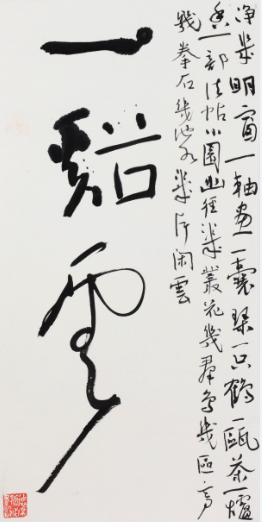 一谿雲
净幾明窗一軸畫一囊琴一只鶴一甌茶一爐
香一部法帖小園幽徑幾叢花幾群鳥幾區亭
幾拳石幾池水幾片闲雲